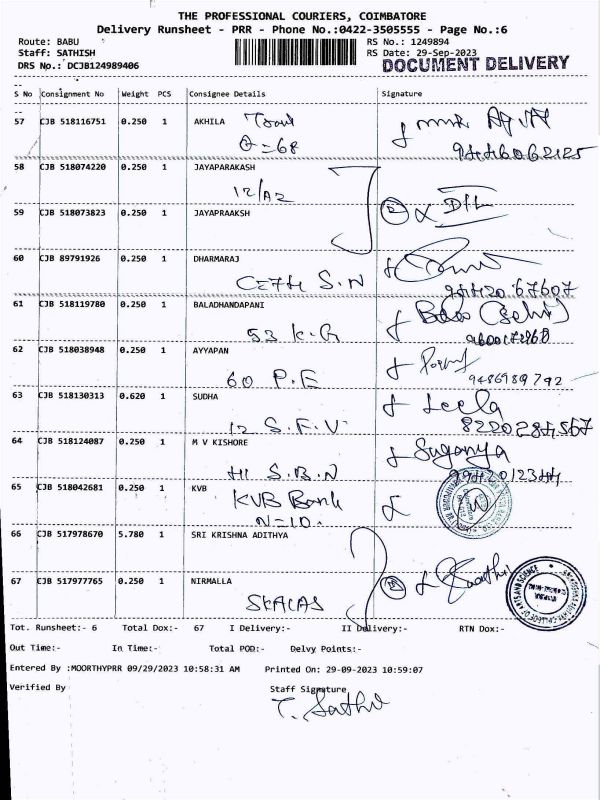 THE PROFESSIONAL COURIERS, COIMBATORE
Delivery Runsheet - PRR - Phone No.:0422-3505555 - Page No.:6
Route: BABU RS No.: 1249894
Staff: SATHISH RS Date: 29-Sep-2023
DRS No.: DCJB124989406 DOCUMENT DELIVERY
S No Consignment No Weight PCS Consignee Details Signature
57 CJB 518116751 0.250 1 AKHILA
Q=68
58 CJB 518074220 0.250 1 JAYAPARAKASH
12/A2
59 CJB 518073823 0.250 1 JAYAPRAAKSH
60 CJB 89791926 0.250 1 DHARMARAJ
S.N 9442067607
61 CJB 518119780 0.250 1 BALADHANDAPANI
53 K.G
62 CJB 518038948 0.250 1 AYYAPAN
60 P.E 9486989792
63 CJB 518130313 0.620 1 SUDHA Leela
12 S.F.V
64 CJB 518124087 0.250 1 M V KISHORE Suganya
H1 S.B.N
65 CJB 518042681 0.250 1 KVB
KVB Bank
N=10.
66 CJB 517978670 5.780 1 SRI KRISHNA ADITHYA
67 CJB 517977765 0.250 1 NIRMALLA
SKACAS
Tot. Runsheet:- 6 Total Dox:- 67 I Delivery:- II Delivery:- RTN Dox:-
Out Time:- In Time:- Total POD:- Delvy Points:-
Entered By :MOORTHYPRR 09/29/2023 10:58:31 AM Printed On: 29-09-2023 10:59:07
Verified By Staff Signature